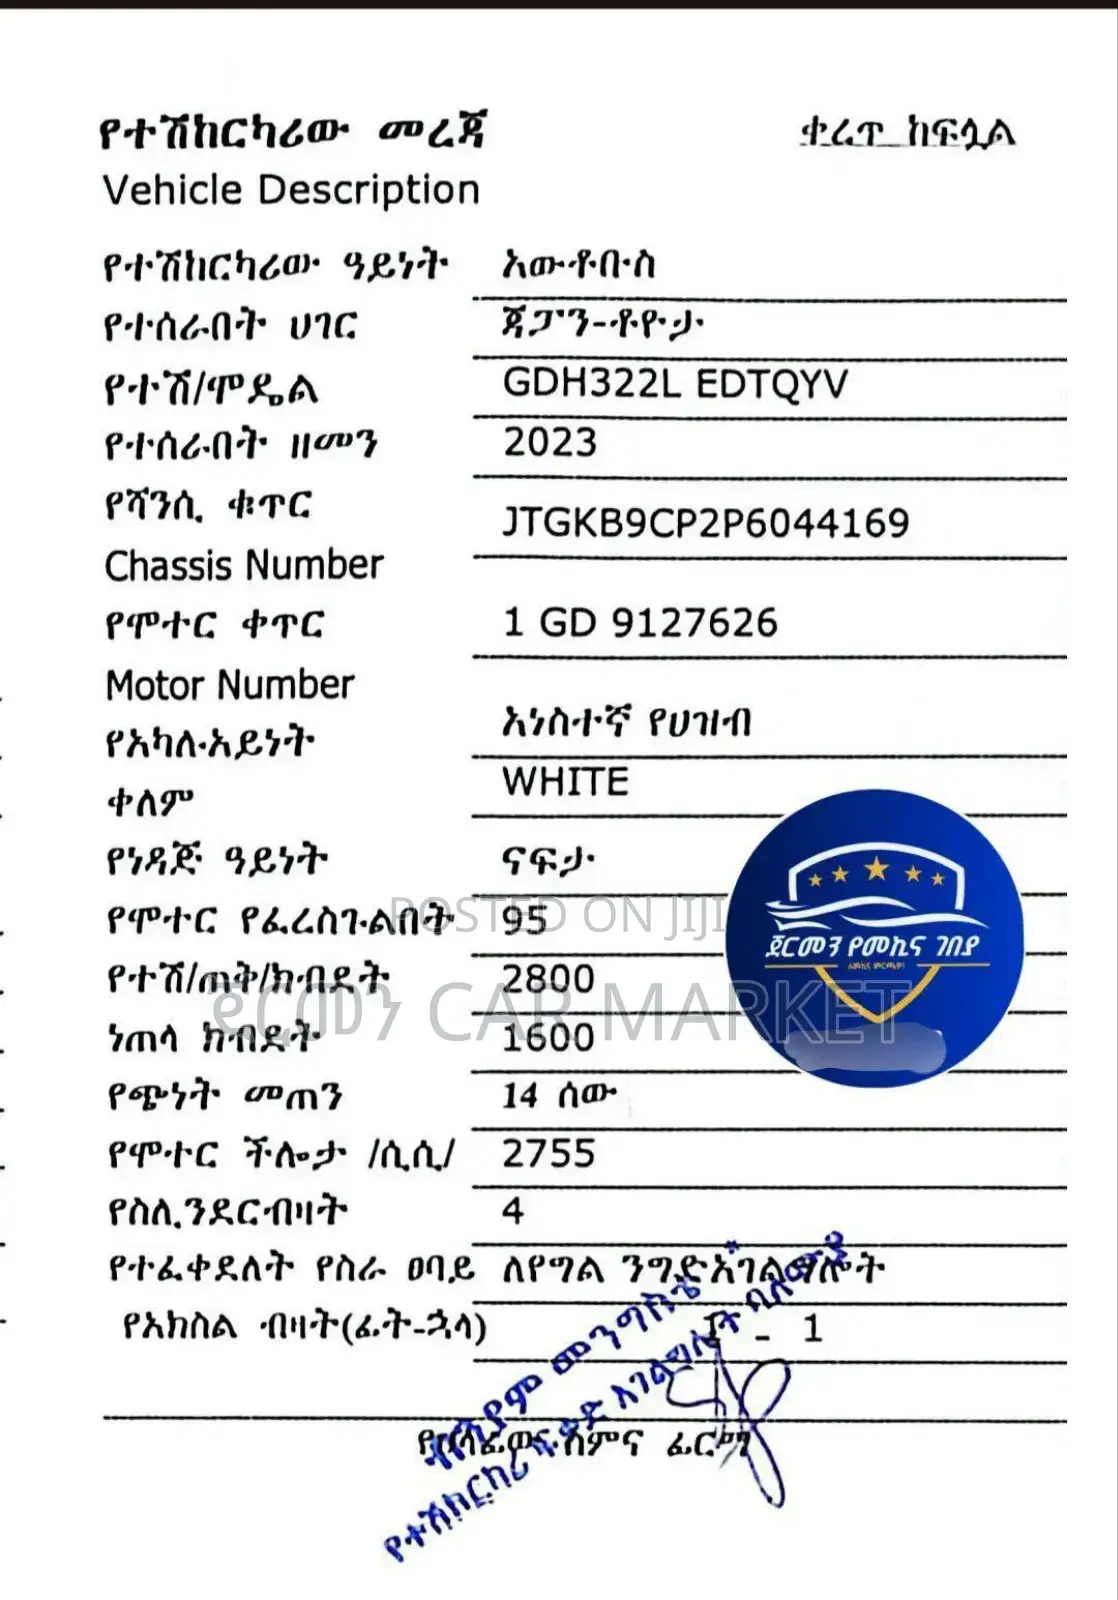 የተሽከርካሪው መረጃ
ቀረጥ ከፍሏል
Vehicle Description
የተሽከርካሪው ዓይነት አውቶቡስ
የተሰራበት ሀገር ጃፓን-ቶዮታ
የተሽ/ሞዴል GDH322L EDTQYV
የተሰራበት ዘመን 2023
የሻንሲ ቁጥር JTGKB9CP2P6044169
Chassis Number
የሞተር ቀጥር 1 GD 9127626
Motor Number
የአካሉ አይነት አነስተኛ የህዝብ
ቀለም WHITE
የነዳጅ ዓይነት ናፍታ
የሞተር የፈረስጉልበት 95
POSTED ON JIJI
የተሽ/ጠቅ/ክብደት 2800
ጀርመን CAR MARKET
ነጠላ ክብደት 1600
የጭነት መጠን 14 ሰው
የሞተር ችሎታ /ሲሲ/ 2755
የስሊንደር ብዛት 4
የተፈቀደለት የስራ ፀባይ ለየግል ንግድ አገልግሎት
የአክስል ብዛት(ፊት-ኋላ) 1 - 1
ጀርመን የመኪና ገበያ
ለመኪና ምርጫዎ!
መንግስቴ
የተሽከርካሪ ፈቃድ አገልግሎት ባለሙያ
ስምና ፊርማ